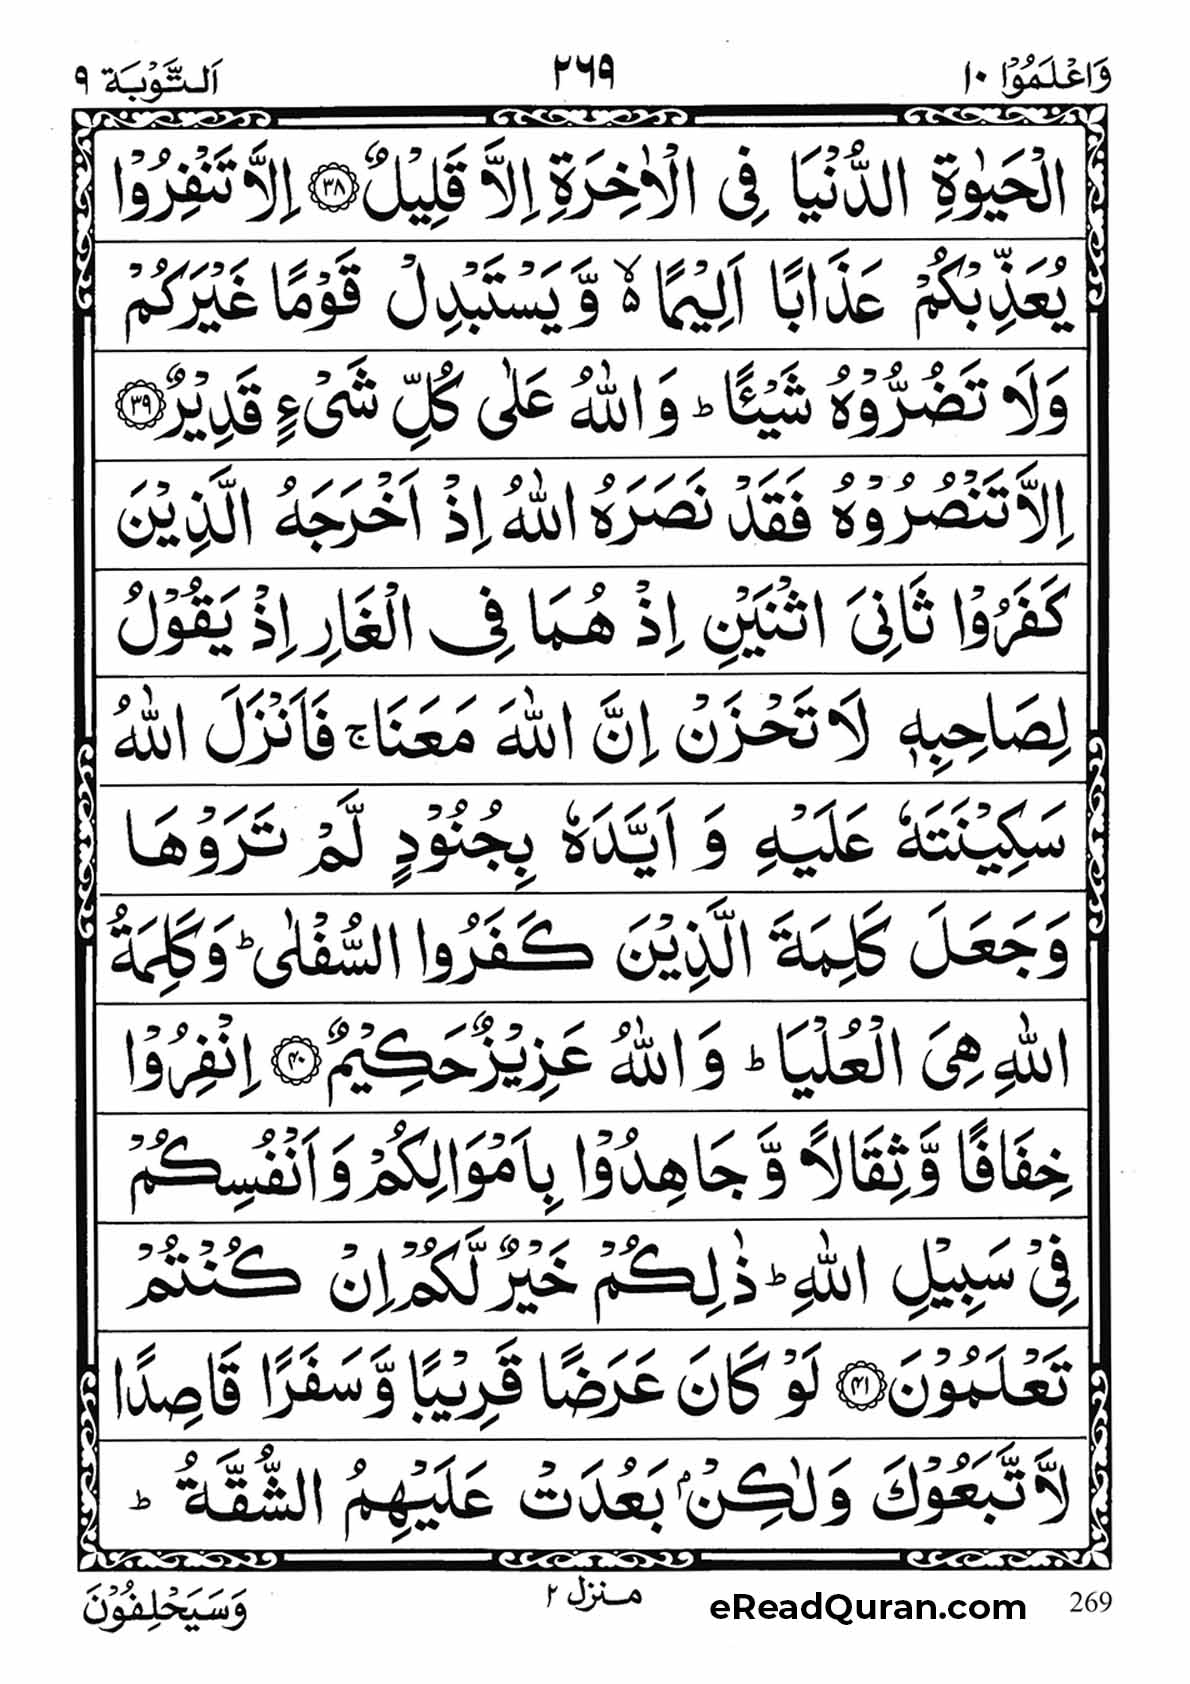 وَاعْلَمُوْۤا ١٠ ٢٦٩ اَلتَّوْبَة ٩
الْحَيٰوةِ الدُّنْيَا فِى الْاٰخِرَةِ اِلَّا قَلِيْلٌ ﴿٣٨﴾ اِلَّا تَنْفِرُوْا
يُعَذِّبْكُمْ عَذَابًا اَلِيْمًا ۙ۬ وَّ يَسْتَبْدِلْ قَوْمًا غَيْرَكُمْ
وَلَا تَضُرُّوْهُ شَيْـًٔا ؕ وَ اللّٰهُ عَلٰى كُلِّ شَىْءٍ قَدِيْرٌ ﴿٣٩﴾
اِلَّا تَنْصُرُوْهُ فَقَدْ نَصَرَهُ اللّٰهُ اِذْ اَخْرَجَهُ الَّذِيْنَ
كَفَرُوْا ثَانِىَ اثْنَيْنِ اِذْ هُمَا فِى الْغَارِ اِذْ يَقُوْلُ
لِصَاحِبِهٖ لَا تَحْزَنْ اِنَّ اللّٰهَ مَعَنَا ۚ فَاَنْزَلَ اللّٰهُ
سَكِيْنَتَهٗ عَلَيْهِ وَ اَيَّدَهٗ بِجُنُوْدٍ لَّمْ تَرَوْهَا
وَ جَعَلَ كَلِمَةَ الَّذِيْنَ كَفَرُوا السُّفْلٰى ؕ وَ كَلِمَةُ
اللّٰهِ هِىَ الْعُلْيَا ؕ وَ اللّٰهُ عَزِيْزٌ حَكِيْمٌ ﴿٤٠﴾ اِنْفِرُوْا
خِفَافًا وَّ ثِقَالًا وَّ جَاهِدُوْا بِاَمْوَالِكُمْ وَ اَنْفُسِكُمْ
فِىْ سَبِيْلِ اللّٰهِ ؕ ذٰلِكُمْ خَيْرٌ لَّكُمْ اِنْ كُنْتُمْ
تَعْلَمُوْنَ ﴿٤١﴾ لَوْ كَانَ عَرَضًا قَرِيْبًا وَّ سَفَرًا قَاصِدًا
لَّا تَّبَعُوْكَ وَلٰكِنْۢ بَعُدَتْ عَلَيْهِمُ الشُّقَّةُ ؕ
وَسَيَحْلِفُوْنَ منزل ٢ eReadQuran.com 269